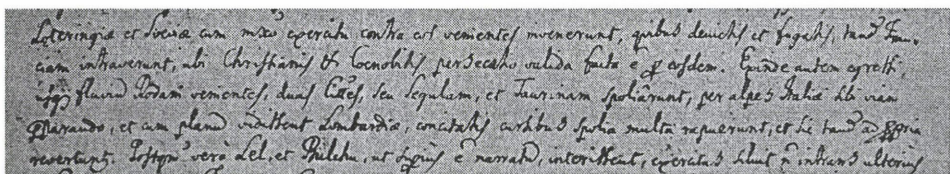 Loteringiæ et Sveviæ cum mixto exercitu contra eos venientes invenerunt, quibus devictis et fugatis, tand̄ Fran-
ciam intraverunt, ubi Christianis & Coenobitis persecutio valida facta ē ꝑ eosdem. Exinde autem egressi,
usq̧ fluviū Rodani venientes, duas Cittes, seu Segulam, et Taurinam spoliârunt, per alpes Italiæ sibi viam
p̄parando, et cum planū vidissent Lombardiæ, concitatis cursibus spolia multa rapuerunt, et sic tand̄ ad ꝓpria
revertunt̄. Postqm̄ verò Lel, et Bulchu, ut supius ē narratū, interissent, exercitus siluit n̄ intrans ulterius